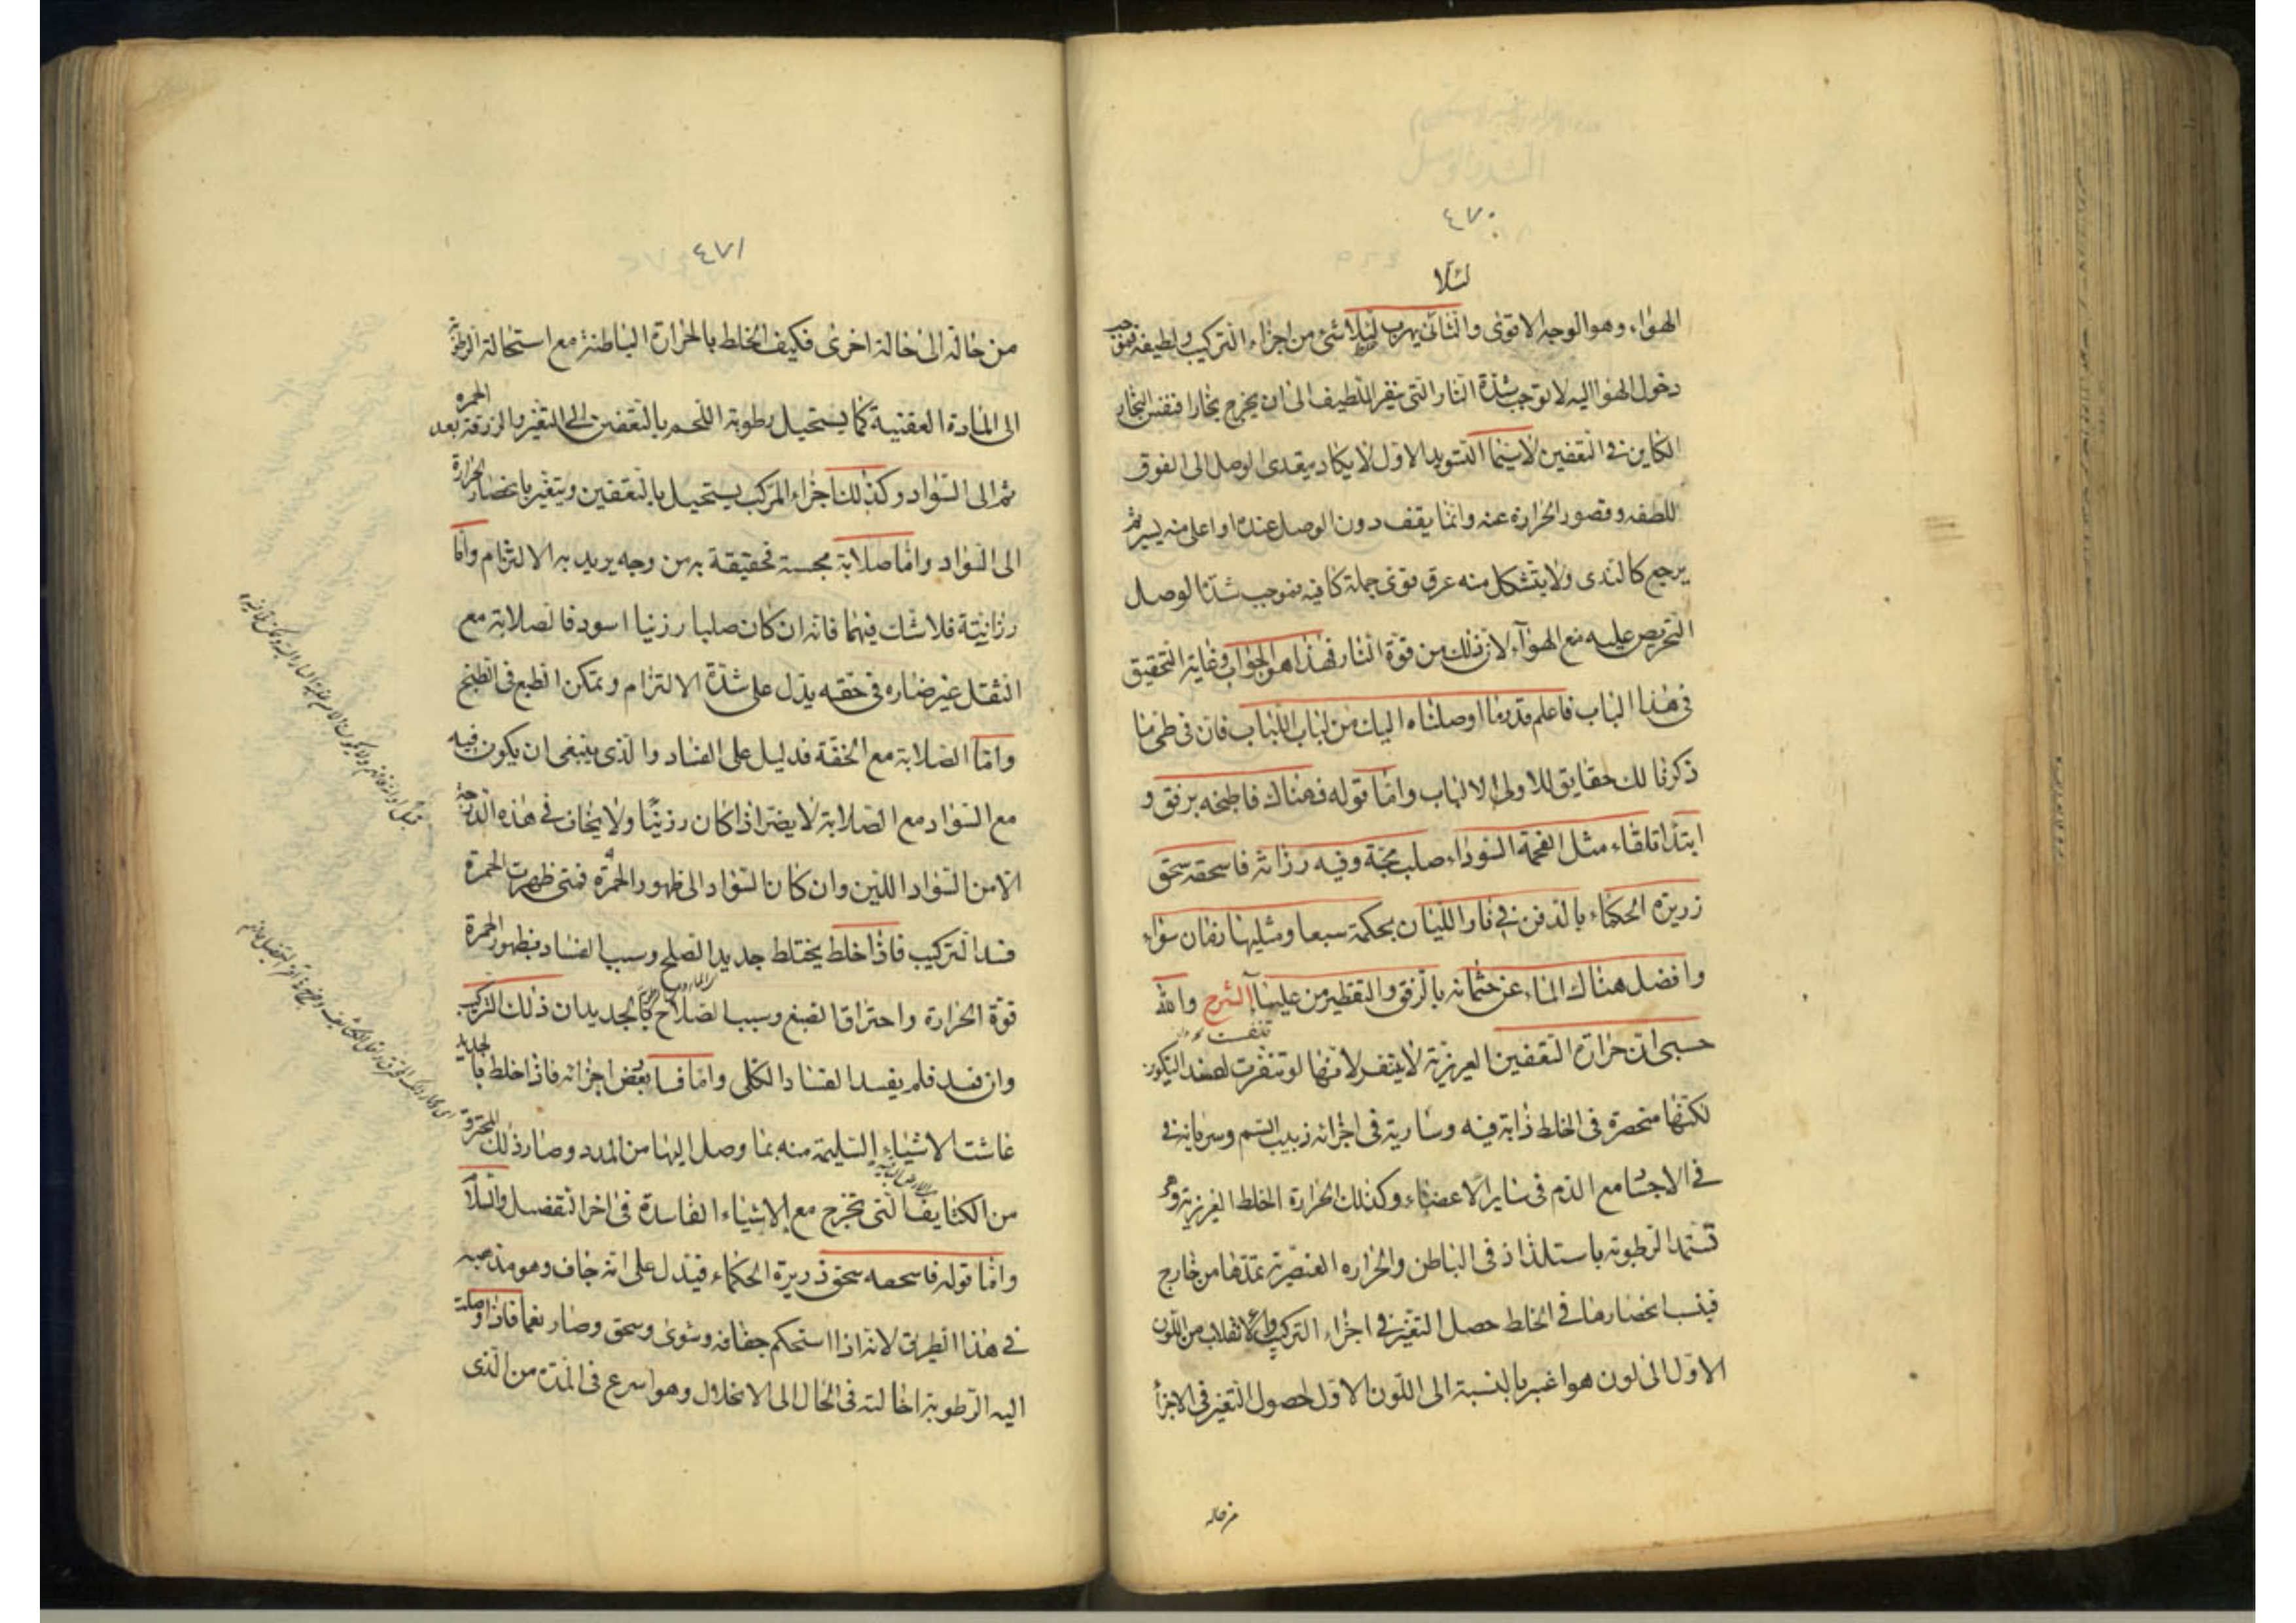 ٤٧٠
لئلا
الهواء وهو الوجه الاقوى والثانى يهرب لئلا شئ من اجزاء التركيب ولطيفه فمتى
دخول الهوا اليه لا توجب شدة النار التى ينفر اللطيف الى ان يخرج بخارا فنفس البخار
الكاين فى التعفين لا سيما التسويد الاول لا يكاد يتعدى الوصل الى الفوق
للطفه وقصور الحرارة عنه وانما يقف دون الوصل عنده او اعلى منه يسير ثم
يرجع كالندى ولا يتشكل منه عرق قوى جملة كافيه فتوجب شد الوصل
التحريص عليه منع الهوآء لان ذلك من قوة النار فهذا هو الجواب وغاية التحقيق
فى هذا الباب فاعلم قدر ما اوصلناه اليك من لباب اللباب فان فى طى ما
ذكرنا لك حقايق للاولى الالباب واما قوله فهناك فاطبخه برفق و
ابتدا تلقاء مثل الفحمة السوداء صلب مجسة وفيه رزانة فاسحقه سحق
زريرة الحكماء بالدفن فى نار الليان بحكمة سبعا ومثليها زمان سواء
وافصل هناك الماء عن جثمانه بالرفق والتقطير من علينا الشرح والله
حسبى ان حرارة التعفين العزيزية لا يتنفر لانها لو تنفرت لصعد التكون
لكنها منحصرة فى الخلط ذابة فيه وسارية فى اجزائه ذبيب السم وسريانه فى
فى الاجسام مع الدم فى ساير الاعضاء وكذلك الحرارة الخلط الغريزية وهى
تستمد الرطوبة باستلذاذ فى الباطن والحراره العنصرية تمدها من خارج
فبسبب انحصارها فى الخلط حصل التغير فى اجزاء التركيب والانقلاب من اللون
الاول الى لون هو اغبر بالنسبة الى اللون الاول لحصول التغير فى الاجزأ
من حاله
٤٧١
من حالة الى حالة اخرى فكيف الخلط بالحرارة الباطنة مع استحالة الرطوبة
الى المادة العفنية كما يستحيل رطوبة اللحم بالتعفن الى التغير بالزرقة بعد الحمره
ثم الى السواد وكذلك اجزاء المركب يستحيل بالتعفين ويتغير بانحصار الحرارة
الى السواد واما صلابة مجسة فحقيقة به من وجه يريد به الالتزام واما
رزانيتة فلا شك فيهما فانه ان كان صلبا رزينا اسود فالصلابة مع
الثقل غير ضاره فى حقه يدل على شدة الالتزام وتمكن الطبع فى الطبخ
واما الصلابة مع الخفة فدليل على الفساد والذى ينبغى ان يكون فيه
مع السواد مع الصلابة لا يضر اذا كان رزينا ولا يخاف فى هذه الدرجة
الا من السواد اللين وان كان السواد الى ظهور الحمرة فمتى ظهرت الحمرة
فسد التركيب فاذا خلط يختلط جديد الصلح وسبب الفساد بظهور الحمرة
قوة الحرارة واحتراق الصبغ وسبب الصلاح بالجديد ان ذلك التركيب
وان فسد فلم يفسد الفساد الكلى واما فسا بعض اجزائه فاذا خلط بالجديد
عاشت الاشياء السليمة منه بما وصل اليها من المدد وصار ذلك المحترقة
من الكثايف التى تخرج مع الاشياء الفاسدة فى اخر التفصيل والسلام
واما قوله فاسحقه سحق ذريرة الحكماء فيدل على انه جاف وهو مذهبه
فى هذا الطريق لانه اذا استحكم جفافه وشوى وسحق وصار نعما فاذا وصلت
اليه الرطوبة احالته فى الحال الى الانحلال وهو اسرع فى المدة من الذى